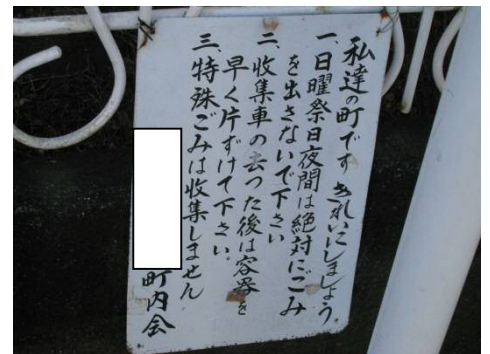 私達の町です きれいにしましょう
一、日曜祭日夜間は絶対にごみ
を出さないで下さい
二、収集車の去った後は容器を
早く片ずけて下さい。
三、特殊ごみは収集しません
町内会